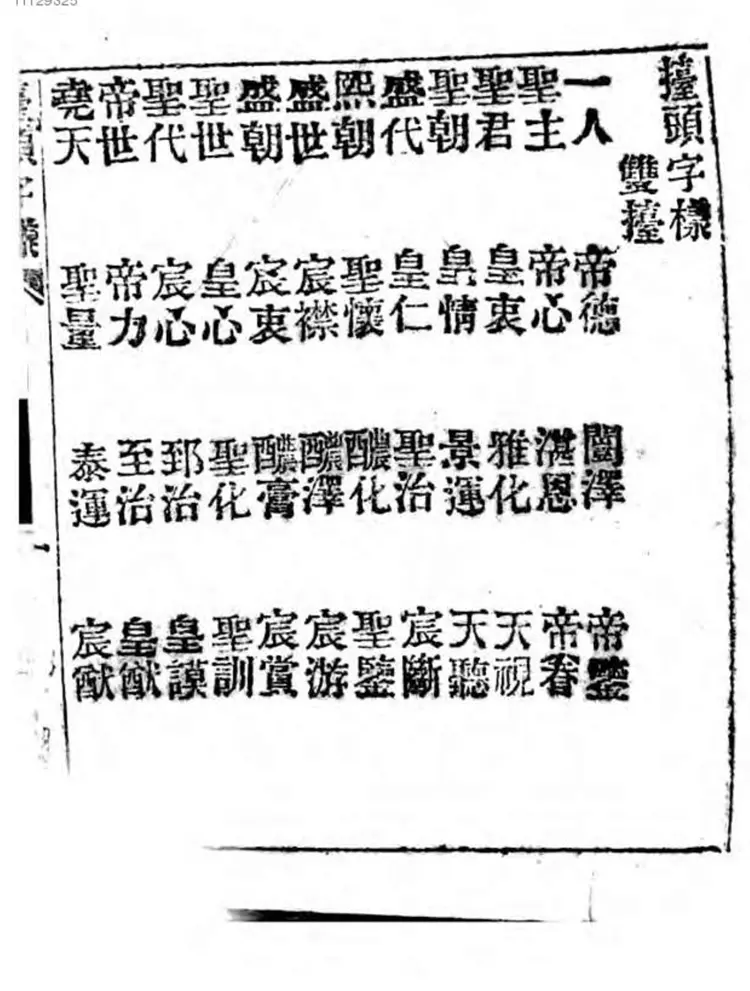 擡頭字樣
雙擡
一人 帝德 闓澤 帝鑒
聖主 帝心 湛恩 帝眷
聖君 皇衷 雅化 天視
聖朝 皇情 景運 天聽
盛代 皇仁 聖治 宸斷
熙朝 聖懷 醲化 聖鑒
盛世 宸襟 醲澤 宸游
盛朝 宸衷 醲膏 宸賞
聖世 皇心 聖化 聖訓
聖代 宸心 郅治 皇謨
帝世 帝力 至治 皇猷
堯天 聖量 泰運 宸猷